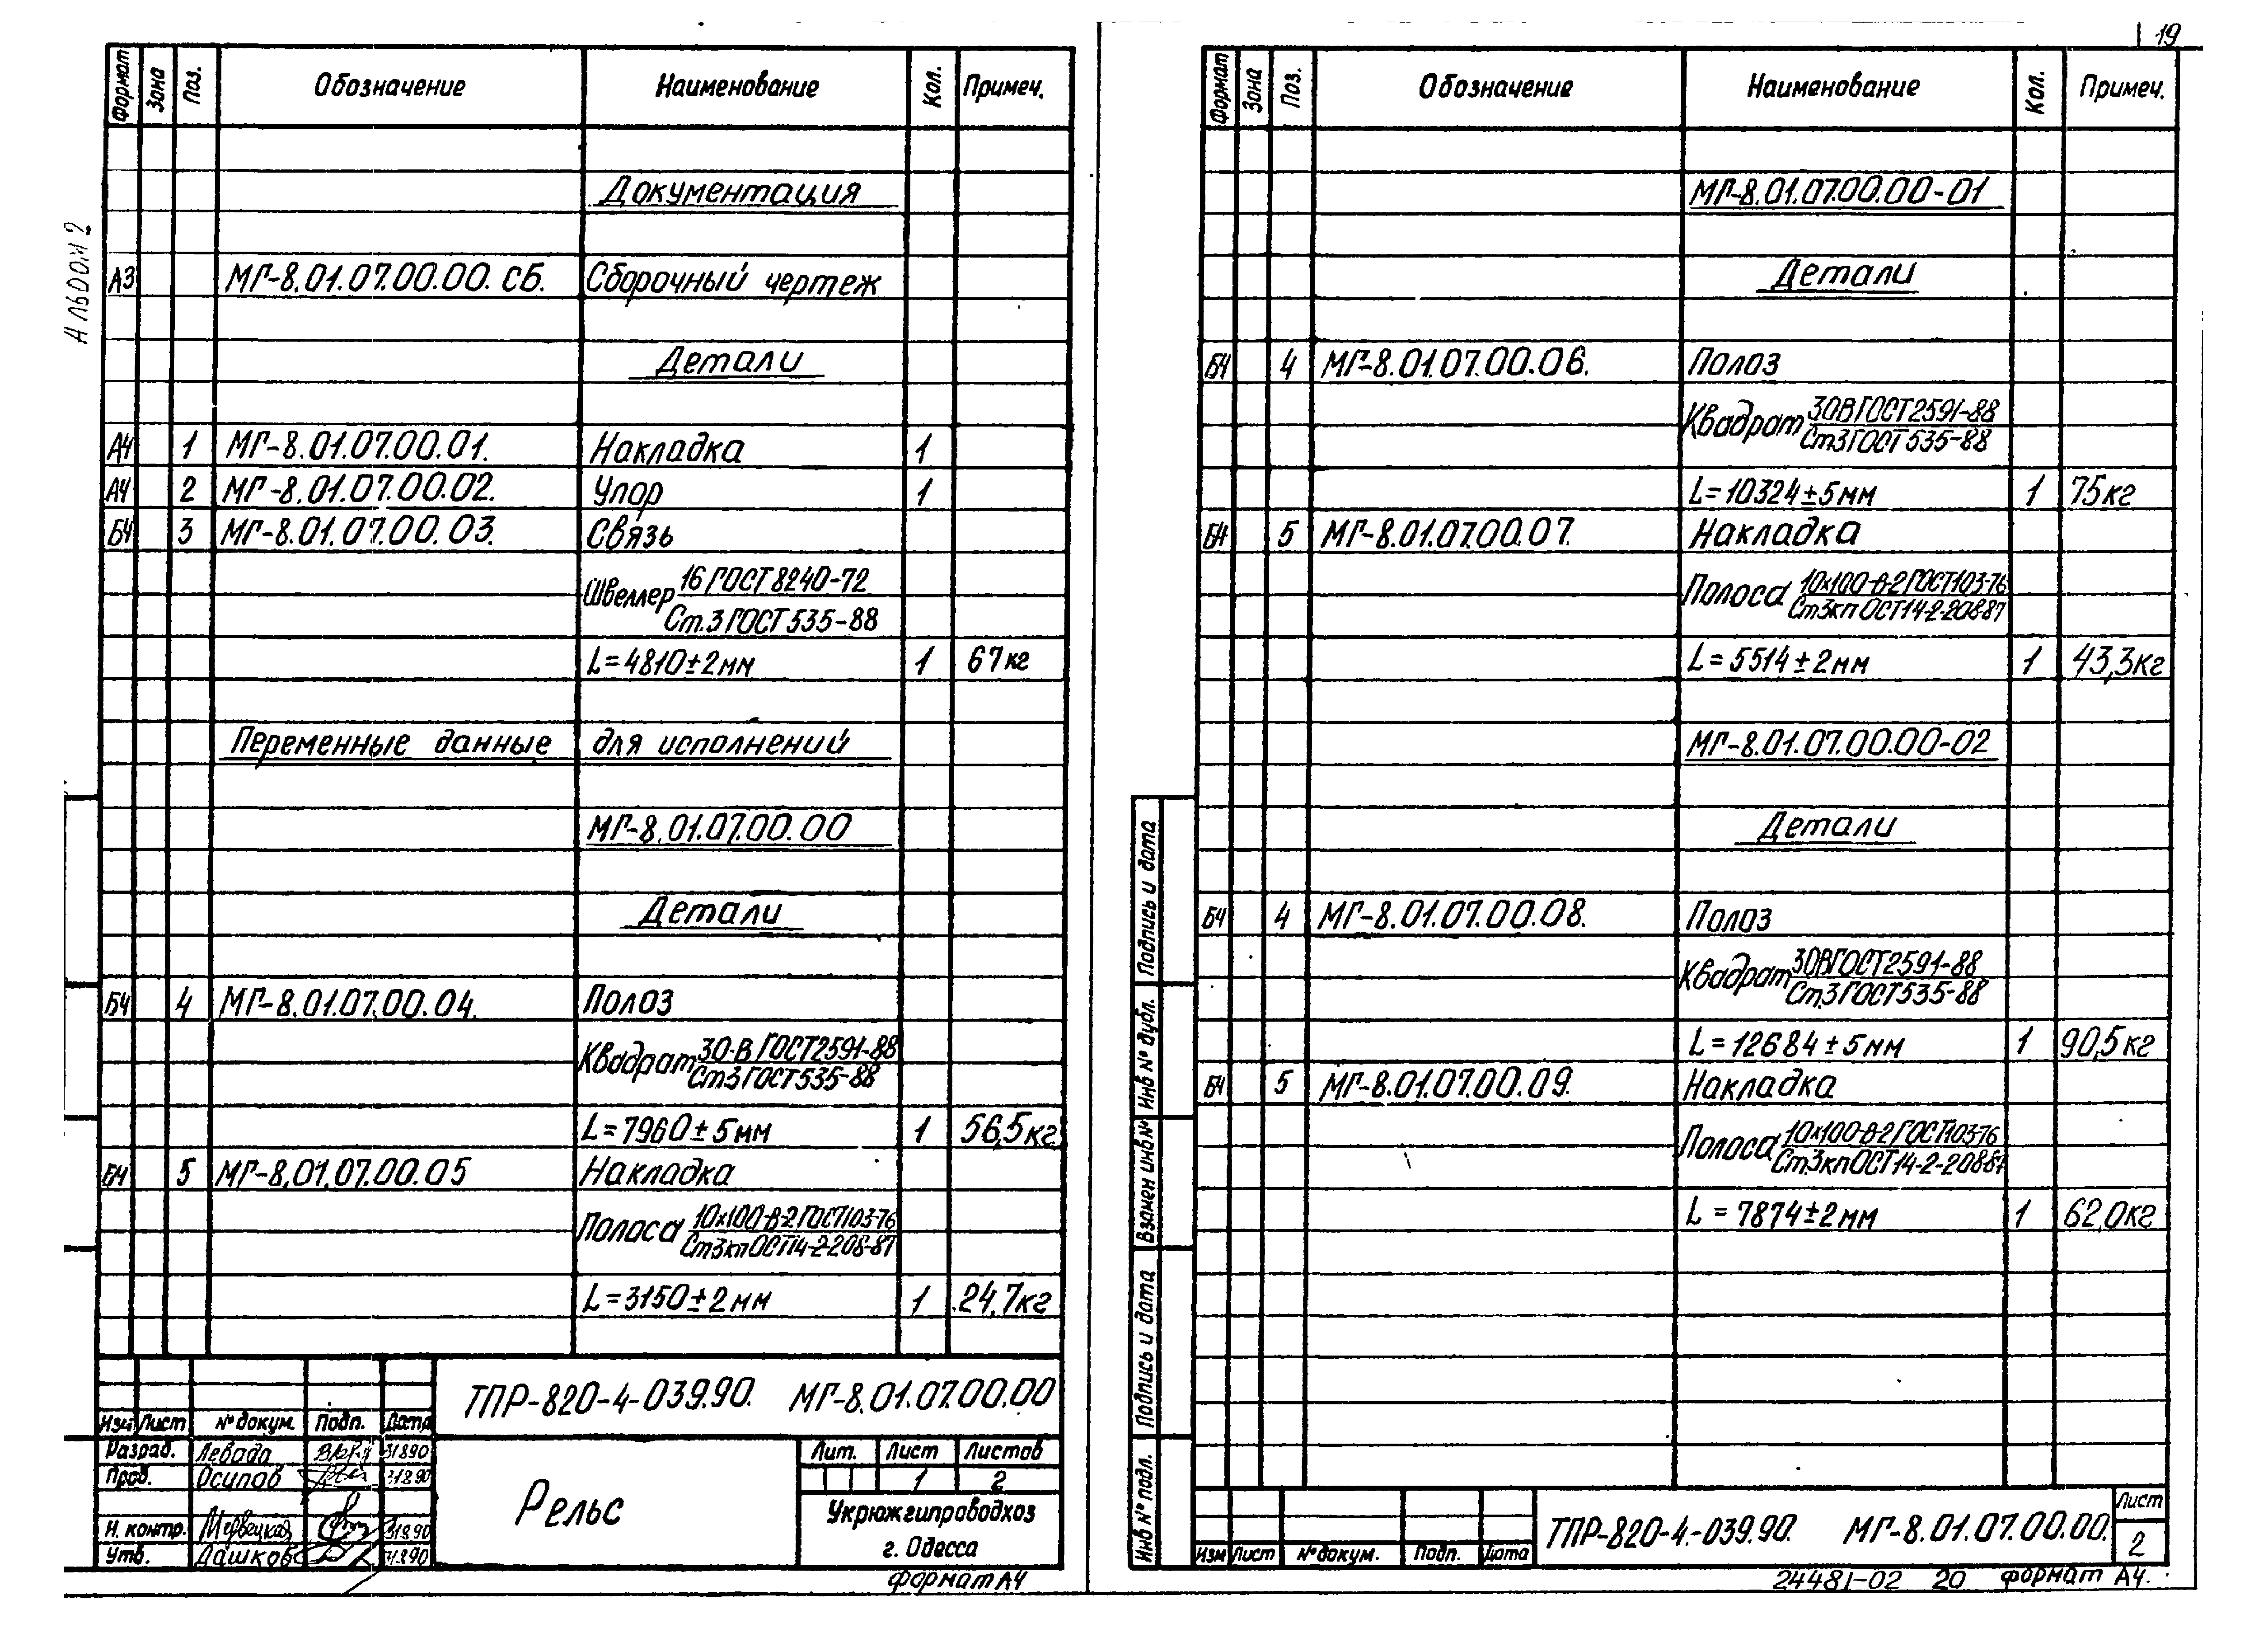 19
Альбом 2
Формат Зона Поз. Обозначение Наименование Кол. Примеч.
Документация
А3 МГ-8.01.07.00.00.СБ. Сборочный чертеж
Детали
А4 1 МГ-8.01.07.00.01. Накладка 1
А4 2 МГ-8.01.07.00.02. Упор 1
БЧ 3 МГ-8.01.07.00.03. Связь
Швеллер 16 ГОСТ 8240-72
Ст.3 ГОСТ 535-88
L=4810±2мм 1 67кг
Переменные данные для исполнений
МГ-8.01.07.00.00
Детали
БЧ 4 МГ-8.01.07.00.04. Полоз
Квадрат 30-В ГОСТ2591-88
Ст3 ГОСТ535-88
L=7960±5мм 1 56,5кг
БЧ 5 МГ-8.01.07.00.05 Накладка
Полоса 10х100-В-2 ГОСТ103-76
Ст3кп ОСТ14-2-208-87
L=3150±2мм 1 24,7кг
ТПР-820-4-039.90. МГ-8.01.07.00.00
Изм Лист № докум. Подп. Дата
Разраб. Левада 31890
Пров. Осипов 31890
Н. контр. 31890
Утв. Дашков 31890
Рельс
Лит. Лист Листов
1 2
Укрюжгипроводхоз
г. Одесса
Формат А4
Формат Зона Поз. Обозначение Наименование Кол. Примеч.
МГ-8.01.07.00.00-01
Детали
БЧ 4 МГ-8.01.07.00.06. Полоз
Квадрат 30В ГОСТ2591-88
Ст3 ГОСТ 535-88
L=10324±5мм 1 75кг
БЧ 5 МГ-8.01.07.00.07. Накладка
Полоса 10х100-В-2 ГОСТ103-76
Ст3кп ОСТ14-2-20887
L=5514±2мм 1 43,3кг
МГ-8.01.07.00.00-02
Детали
БЧ 4 МГ-8.01.07.00.08. Полоз
Квадрат 30В ГОСТ2591-88
Ст.3 ГОСТ535-88
L=12684±5мм 1 90,5кг
БЧ 5 МГ-8.01.07.00.09. Накладка
Полоса 10х100-В-2 ГОСТ103-76
Ст.3кп ОСТ14-2-20887
L=7874±2мм 1 62,0кг
Подпись и дата
Инв № дубл.
Взамен инв №
Подпись и дата
Инв № подл.
Изм Лист № докум. Подп. Дата
ТПР-820-4-039.90. МГ-8.01.07.00.00.
Лист
2
24481-02 20 формат А4.